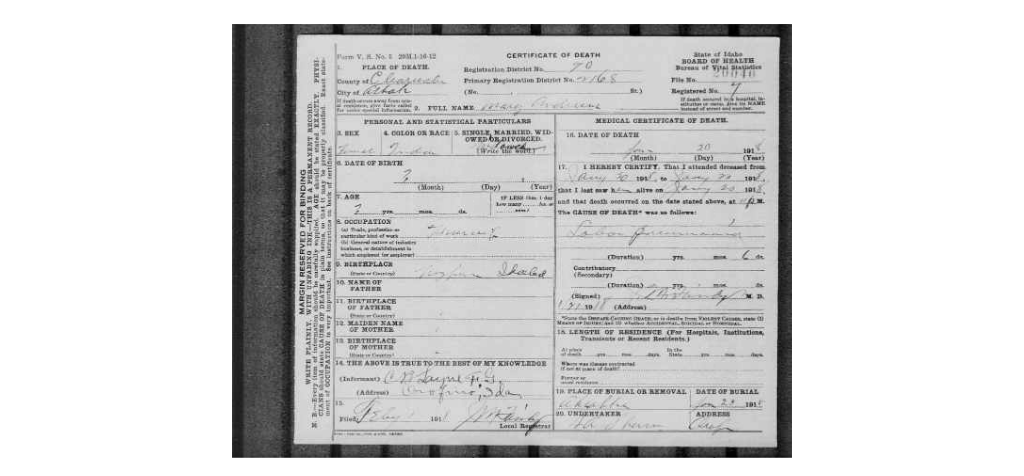 Form V. S. No. 5 20M.1-16-12
CERTIFICATE OF DEATH
State of Idaho
BOARD OF HEALTH
Bureau of Vital Statistics
1. PLACE OF DEATH.
County of Clearwater
City of
Registration District No. 70
Primary Registration District No. 2168
(No. St.)
File No. 20040
Registered No. 7
If death occurred in a hospital, institution or camp, give its NAME instead of street and number.
If death occurs away from usual residence, give facts called for under special information.
2. FULL NAME Mary
PERSONAL AND STATISTICAL PARTICULARS
3. SEX
4. COLOR OR RACE
5. SINGLE, MARRIED, WIDOWED OR DIVORCED.
(Write the word.)
Femal Indian Widowed
6. DATE OF BIRTH
?
(Month) (Day) (Year)
7. AGE
IF LESS than 1 day
how many
? yrs. mos. ds.
8. OCCUPATION
(a) Trade, profession or particular kind of work
(b) General nature of industry business, or establishment in which employed (or employer)
9. BIRTHPLACE
(State or Country) Idaho
10. NAME OF FATHER
11. BIRTHPLACE OF FATHER
(State or Country)
12. MAIDEN NAME OF MOTHER
13. BIRTHPLACE OF MOTHER
(State or Country)
14. THE ABOVE IS TRUE TO THE BEST OF MY KNOWLEDGE
(Informant) C B Layne
(Address) Orofino, Ida
15.
Filed Feby 1 191
Local Registrar
MEDICAL CERTIFICATE OF DEATH.
16. DATE OF DEATH
Jan 20 1918
(Month) (Day) (Year)
17. I HEREBY CERTIFY, That I attended deceased from
Jany 20 1918, to Jany 20 1918,
that I last saw her alive on Jany 20 1918,
and that death occurred on the date stated above, at M.
The CAUSE OF DEATH* was as follows:
Lobar pneumonia
(Duration) yrs. mos. 6 ds.
Contributory
(Secondary)
(Duration) yrs. mos. ds.
(Signed) M. D.
191 (Address)
*State the DISEASE CAUSING DEATH, or in deaths from VIOLENT CAUSES, state (1) MEANS OF INJURY; and (2) whether ACCIDENTAL, SUICIDAL or HOMICIDAL.
18. LENGTH OF RESIDENCE (For Hospitals, Institutions, Transients or Recent Residents.)
At place of death yrs. mos. days. In the State yrs. mos. days.
Where was disease contracted
if not at place of death?
Former or usual residence
19. PLACE OF BURIAL OR REMOVAL
DATE OF BURIAL
Ahsahka Jan 23 1918
20. UNDERTAKER
ADDRESS
MARGIN RESERVED FOR BINDING
WRITE PLAINLY, WITH UNFADING INK—THIS IS A PERMANENT RECORD.
N. B.—Every item of information should be carefully supplied. AGE should be stated EXACTLY. PHYSICIANS should state CAUSE OF DEATH in plain terms, so that it may be properly classified. Exact statement of OCCUPATION is very important. See instructions on back of certificate.